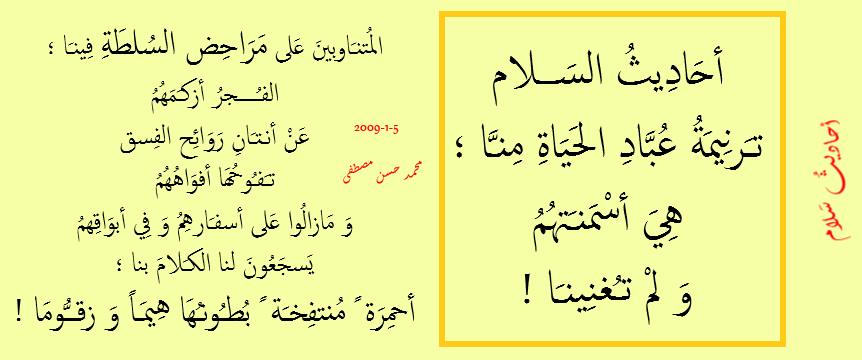 أحاديثُ سَلام
أحَادِيثُ السَـــلام
تـَرنِيمَةُ عُبَّادِ الحَيَاةِ مِنـَّا ؛
هِيَ أسْمَنـَتهُمُ
وَ لمْ تـُغنِينـَا !
المُتنـَاوبينَ عَلى مَرَاحِضِ السُلطَةِ فِينـَا ؛
الفـُـــجرُ أزكـَمَهُمُ
عَنْ أنـتـَانِ رَوَائِح الفِسق
تـَفـُوحُهَا أفوَاهُهُمُ
وَ مَازالُوا عَلى أسفـَارهِمُ وَ فِي أبوَاقِهمُ
يَسجَعُونَ لنا الكـَلامَ بنا ؛
أحمِرَة ً مُنتفِخـَة ً بُطُونـُهَا هِيمَـاً وَ زقـُّـومَا !
2009-1-5
محمد حسن مصطفى